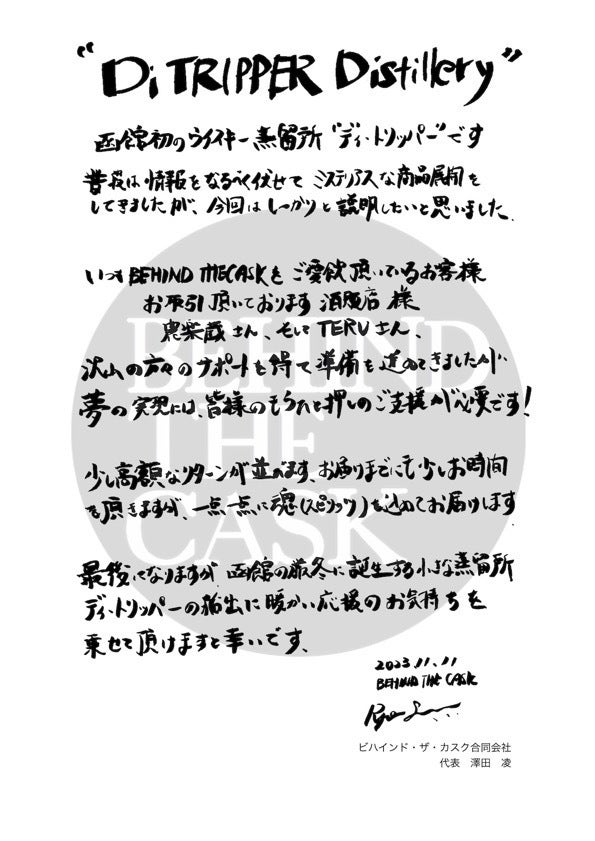 “Di TRIPPER Distillery”
函館初のウイスキー蒸留所“ディ・トリッパー”です
普段は情報をなるべく伏せて ミステリアスな商品展開を
してきましたが、今回はしっかりと説明したいと思いました。
いつもBEHIND THE CASKをご愛飲頂いているお客様
お取引頂いております 酒販店様
農楽蔵さん、そしてTERUさん
沢山の方々のサポートを得て準備を進めてきましたが
夢の実現には、皆様のもうひと押しのご支援が必要です!
少し高額なリターンが並びます、お届けまでにも少しお時間
を頂きますが、一点一点に魂(スピリッツ)を込めてお届けします
最後になりますが 函館の厳冬に誕生する小さな蒸留所
ディ・トリッパーの船出に暖かい応援のお気持ちを
乗せて頂けますと幸いです、
2023.11.11
BEHIND THE CASK
ビハインド・ザ・カスク合同会社
代表 澤田 凌
BEHIND
THE
CASK